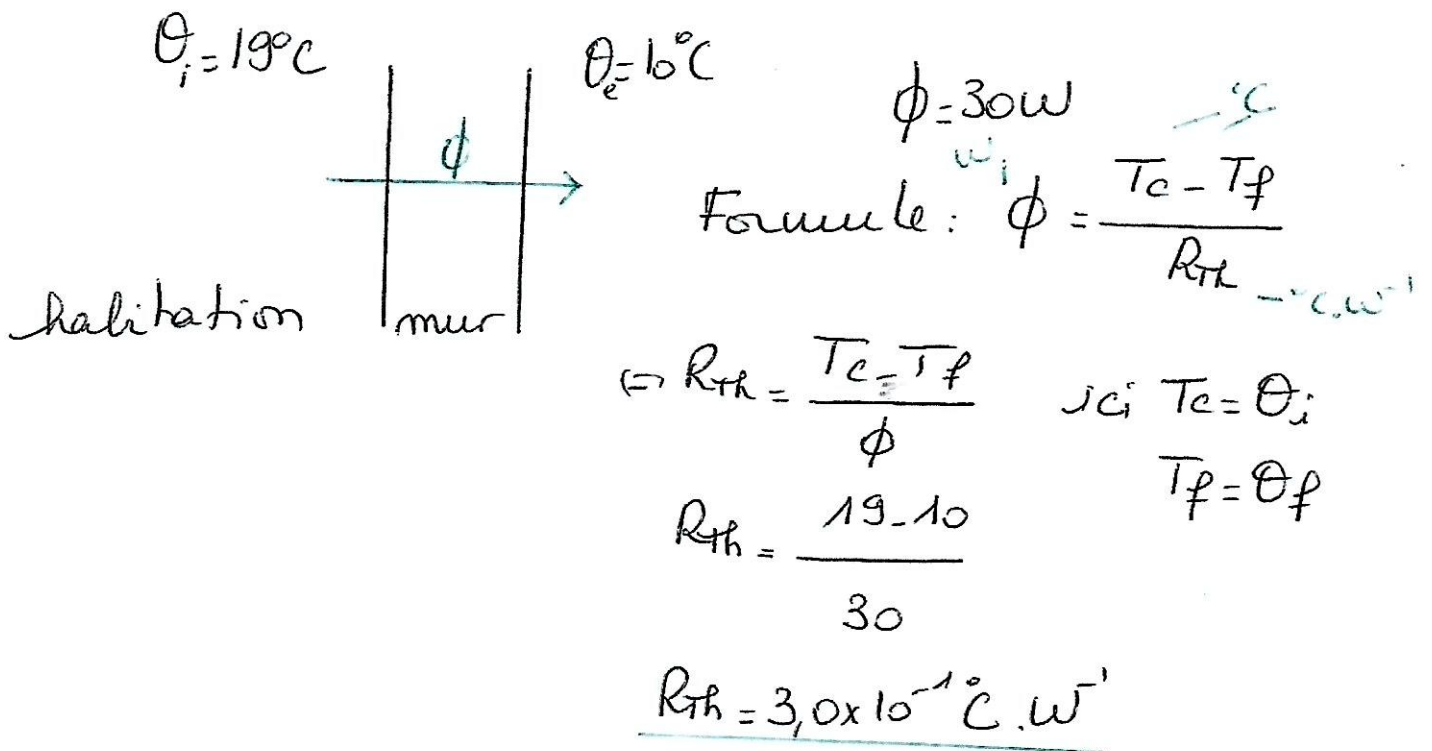 θi = 19°C
θe = 10°C
ϕ
habitation
mur
ϕ = 30W
°C
W
Formule : ϕ = (Tc - Tf) / RTh
°C.W⁻¹
⇔ RTh = (Tc - Tf) / ϕ ici Tc = θi
Tf = θf
RTh = (19 - 10) / 30
RTh = 3,0 x 10⁻¹ °C.W⁻¹